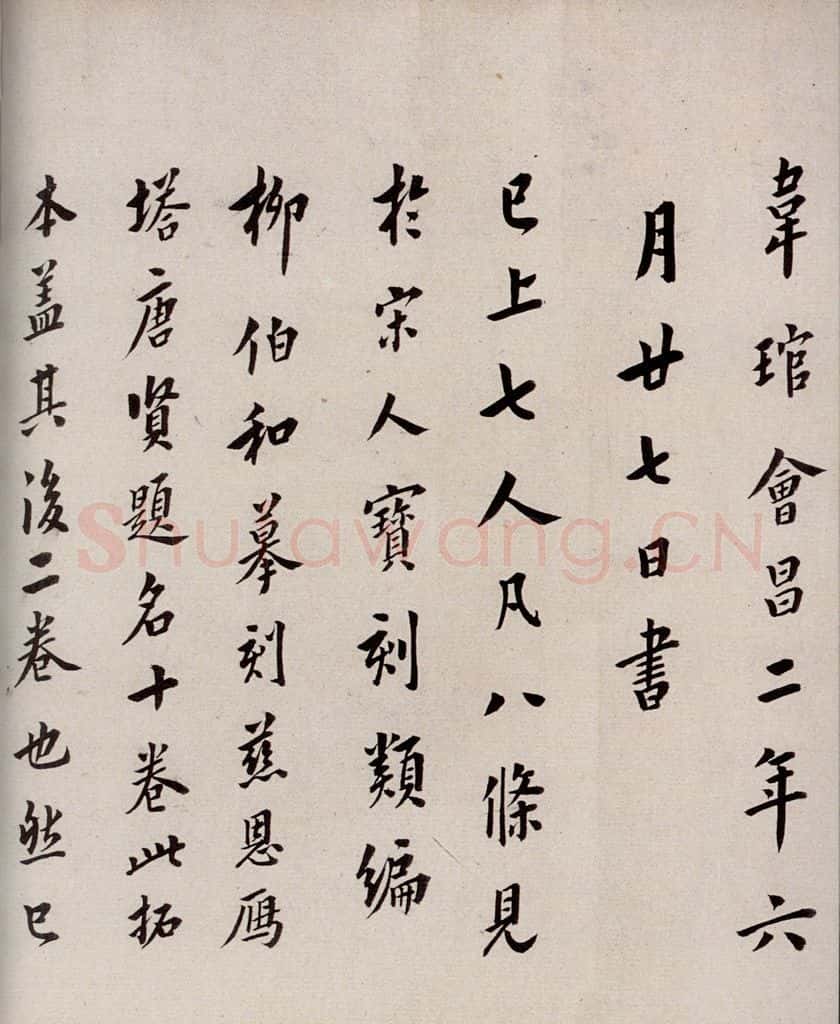 韋琯會昌二年六
月廿七日書
已上七人凡八條見
於宋人寶刻類編
柳伯和摹刻慈恩鴈
塔唐賢題名十卷此拓
本盖其後二卷也然已
Shufawang.CN